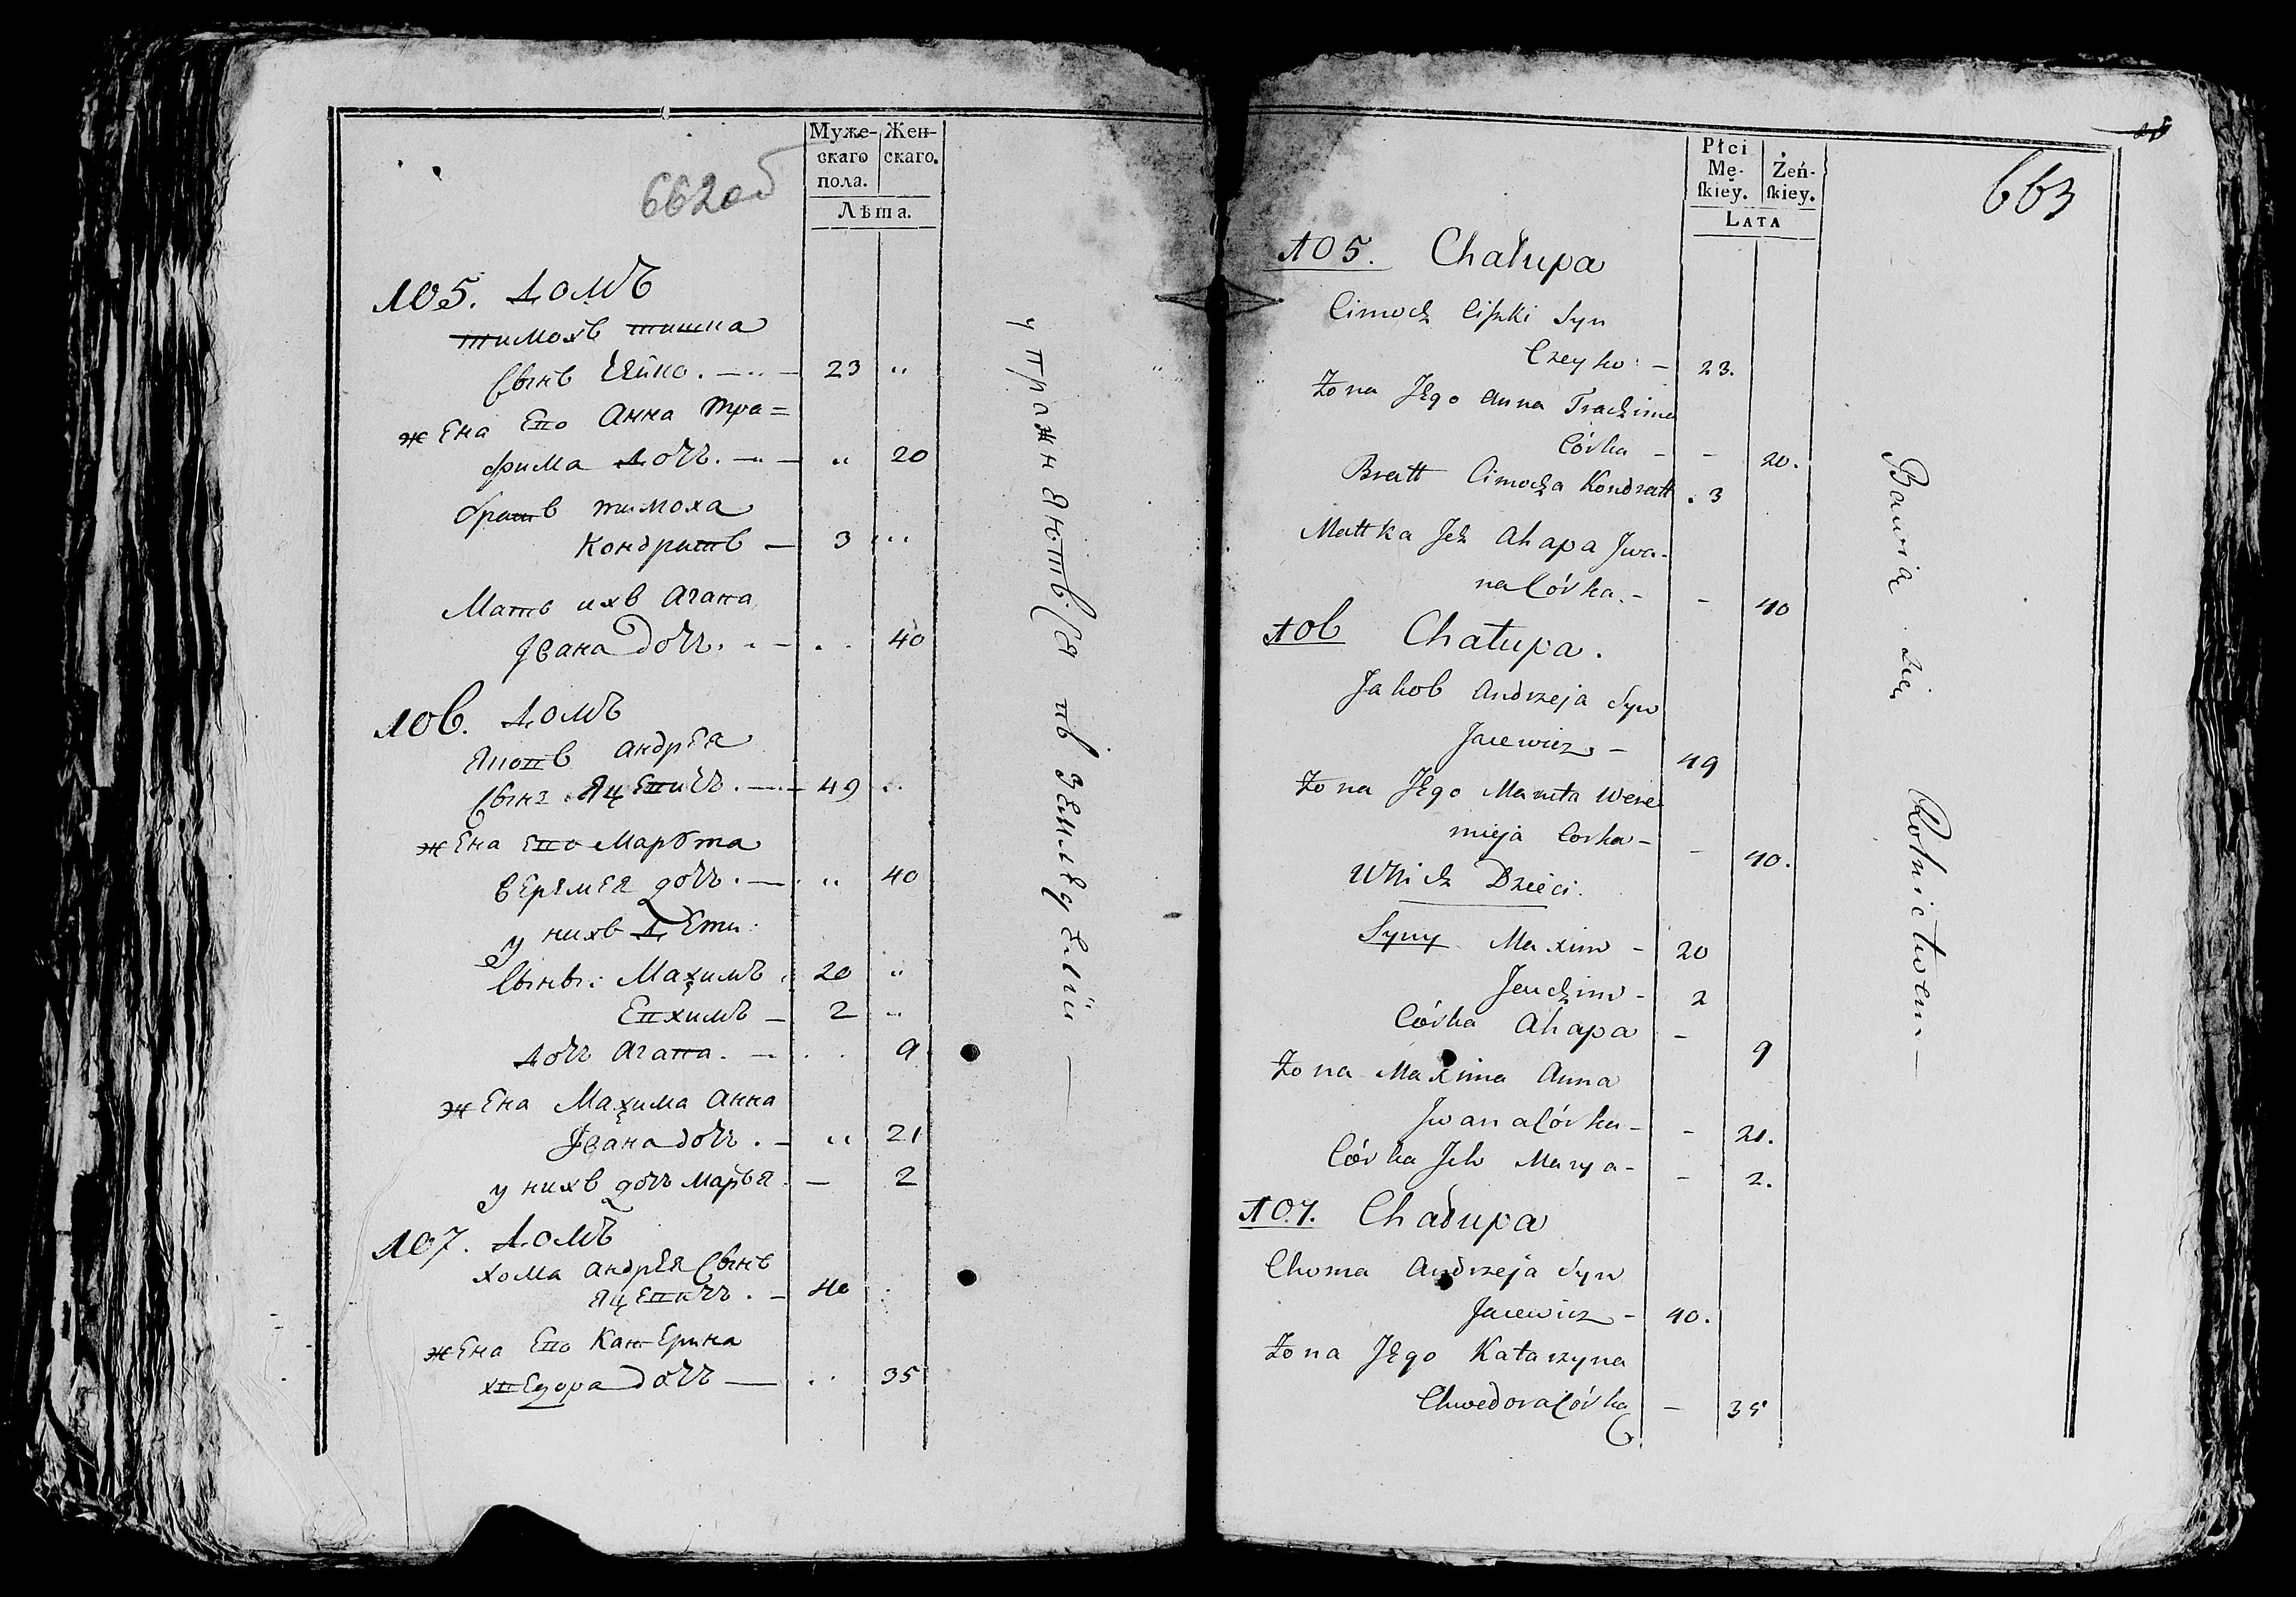 662 об
Муже-
скаго
пола.
Жен-
скаго.
Лѣта.
105. домъ
тимохъ тишка
сынъ Цейко. — 23 "
жена Его Анна тра=
фима дочь. — " 20
братъ тимоха
Кондратъ — 3 "
Мать ихъ Агапа
Ивана дочь. — . . 40
106. домъ
Якопъ андрЕя
сынъ Яцевичъ. — 49 "
жена его Марѣта
верЕмЕя дочь. — " 40
у нихъ дЕти:
сыны: Маξимъ 20 "
Евхимъ — 2 "
дочь Агапа. — . . 9
жена Маξима Анна
Ивана дочь. — " 21
у нихъ дочь Марья. — 2
107. домъ
хома андрЕя сынъ
Яцевичъ. — 40 .
жена Его КатЕрина
хвЕдора дочь — . . 35
упражняютъся въ землѣделіи —
663
Płci
Mę-
ſkiey.
Żeń-
ſkiey.
LATA
105. Chałupa
Cimoch Ciszki Syn
Czeyko — 23.
Żona Jego Anna Trachima
Córka — - 20.
Bratt Cimocha Kondratt . 3
Mattka Jch Ahapa Jwa-
na Córka. - - 40
106 Chałupa.
Jakob Andrzeja Syn
Jacewicz — 49
Żona Jego Marta Were
mieja Corka — - 40.
U Nich Dzieci.
Syny Maxim - 20
Jeuchim - 2
Córka Ahapa - 9
Żona Maxima Anna
Jwana Córka - - 21.
Córka Jch Marya - - 2.
107. Chałupa
Choma Andrzeja Syn
Jacewicz - 40.
Żona Jego Katarzyna
Chwedora Córka — 35
Bawią się Rolnictwem —